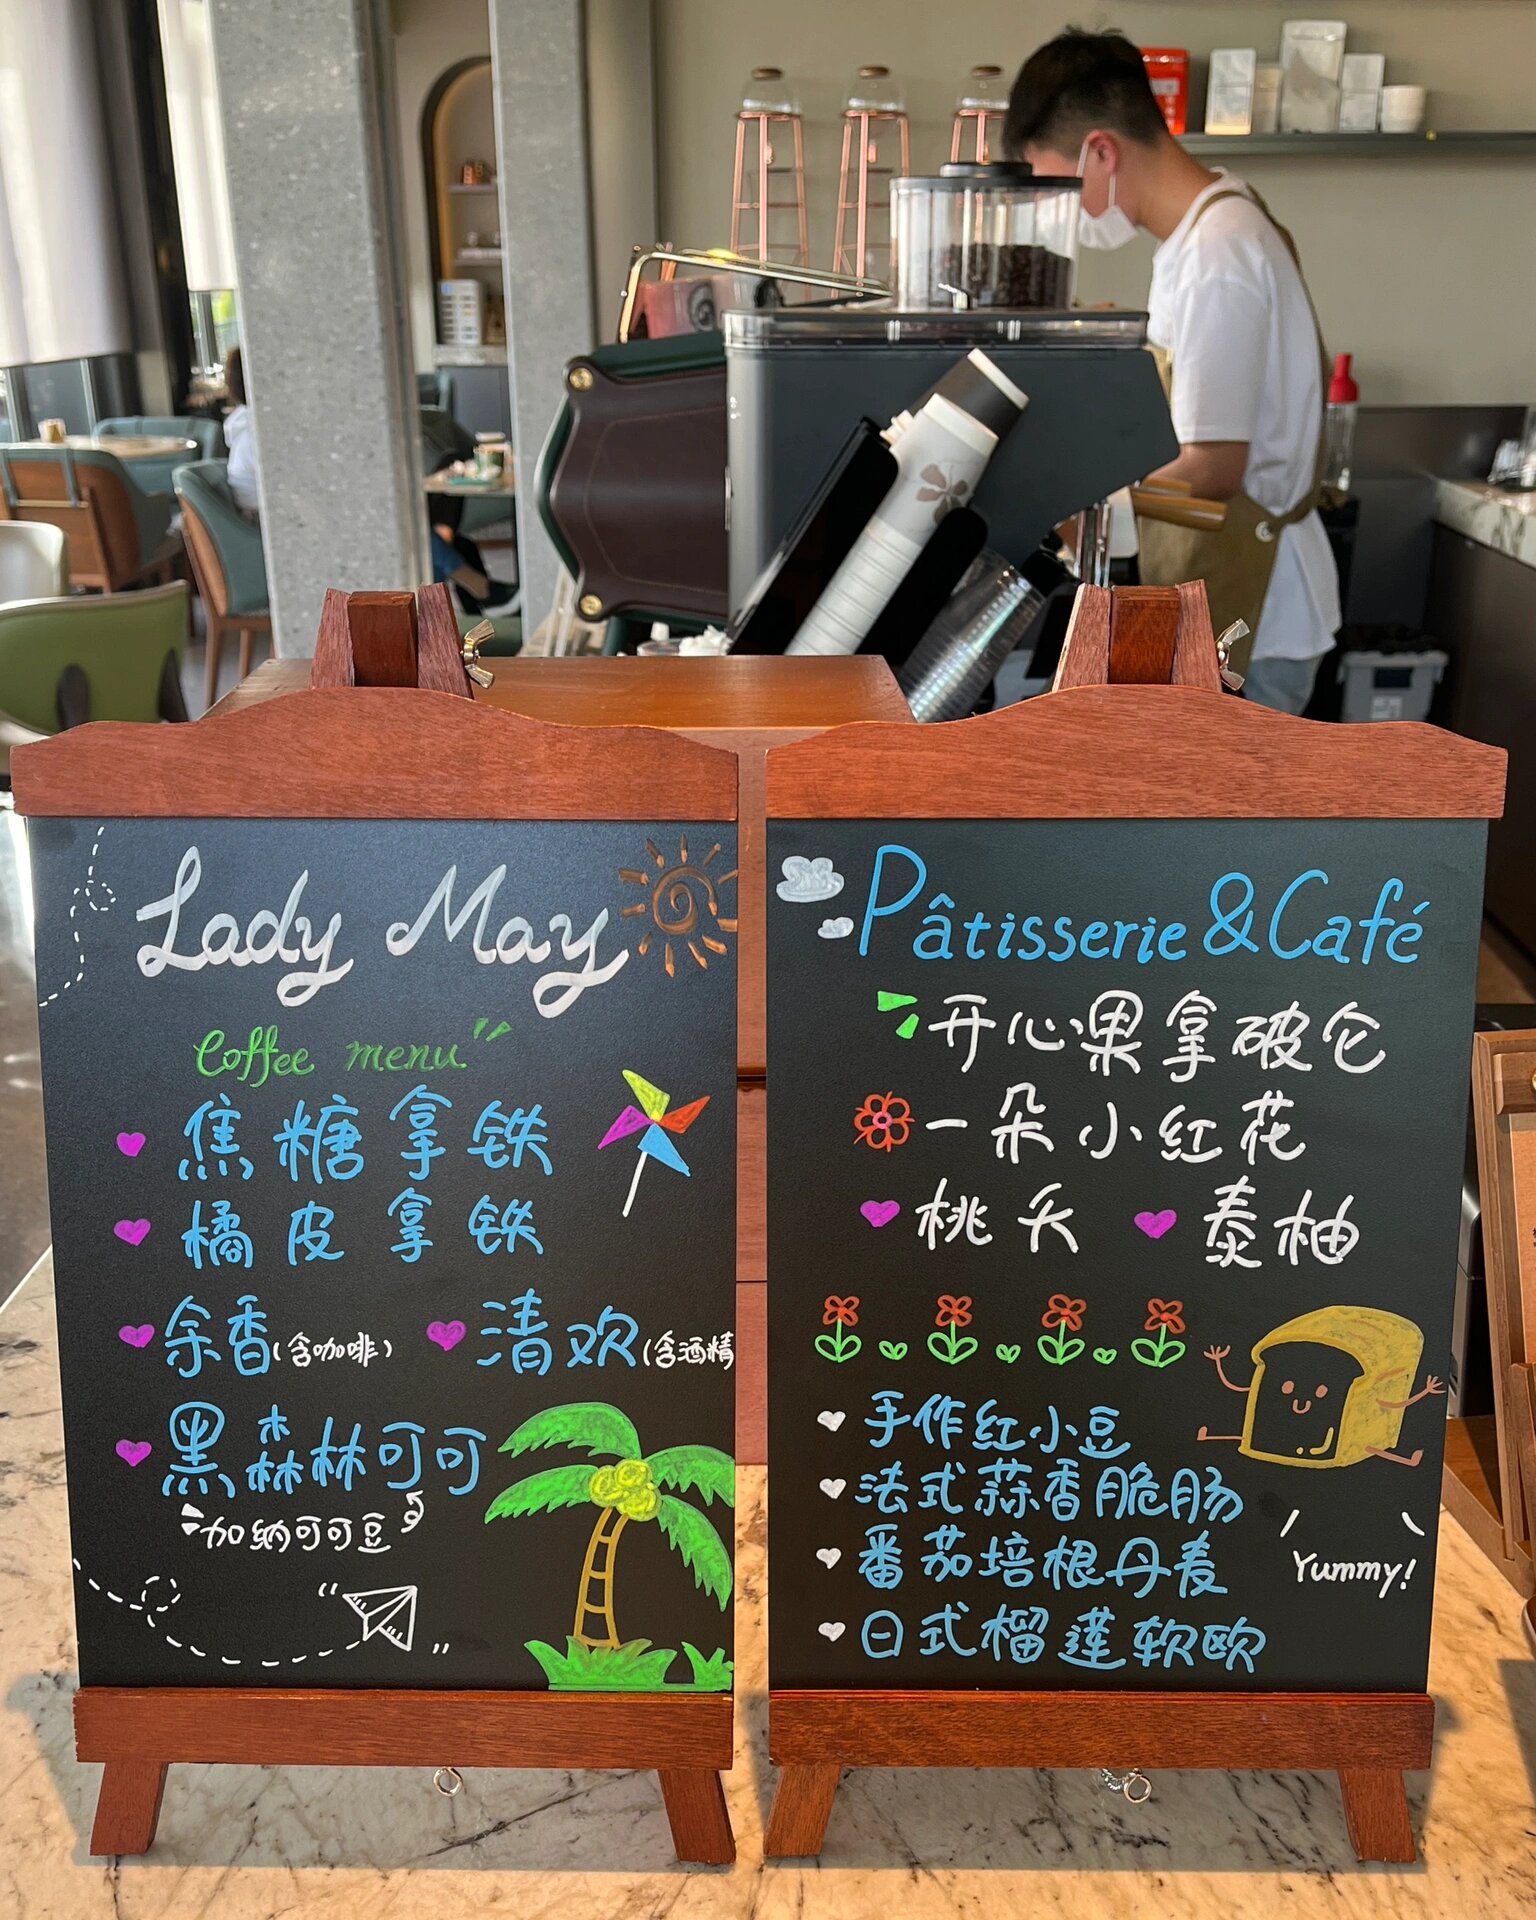 Lady May
Coffee menu
焦糖拿铁
橘皮拿铁
余香(含咖啡) 清欢(含酒精
黑森林可可
加纳可可豆
Pâtisserie & Café
开心果拿破仑
一朵小红花
桃夭 泰柚
手作红小豆
法式蒜香脆肠
番茄培根丹麦
日式榴莲软欧
Yummy!